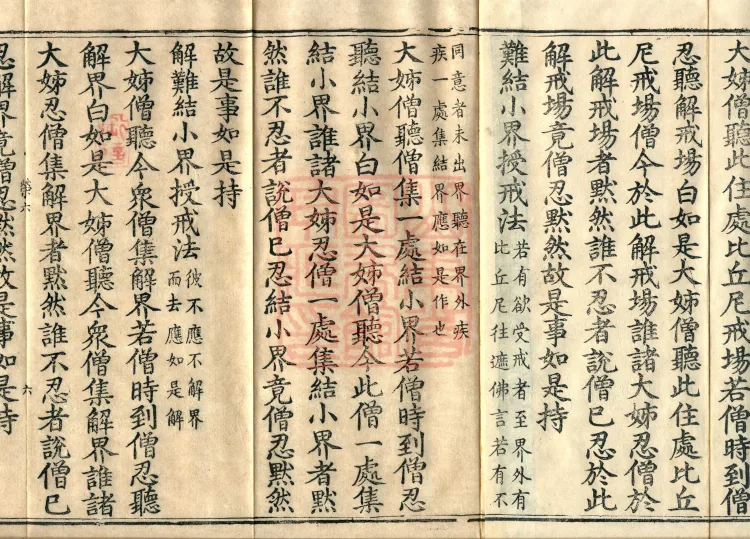 大姊僧聽此住處比丘尼戒場若僧時到僧
忍聽解戒場白如是大姊僧聽此住處比丘
尼戒場僧今於此解戒場誰諸大姊忍僧於
此解戒場者默然誰不忍者說僧已忍於此
解戒場竟僧忍默然故是事如是持
難結小界授戒法若有欲受戒者至界外有
比丘尼往遮佛言若有不
同意者未出界聽在界外疾
疾一處集結界應如是作也
大姊僧聽僧集一處結小界若僧時到僧忍
聽結小界白如是大姊僧聽今此僧一處集
結小界誰諸大姊忍僧一處集結小界者默
然誰不忍者說僧已忍結小界竟僧忍默然
故是事如是持
解難結小界授戒法彼不應不解界
而去應如是解
大姊僧聽今衆僧集解界若僧時到僧忍聽
解界白如是大姊僧聽今衆僧集解界誰諸
大姊忍僧集解界者默然誰不忍者說僧已
六
忍解界竟僧忍默然故是事如是持